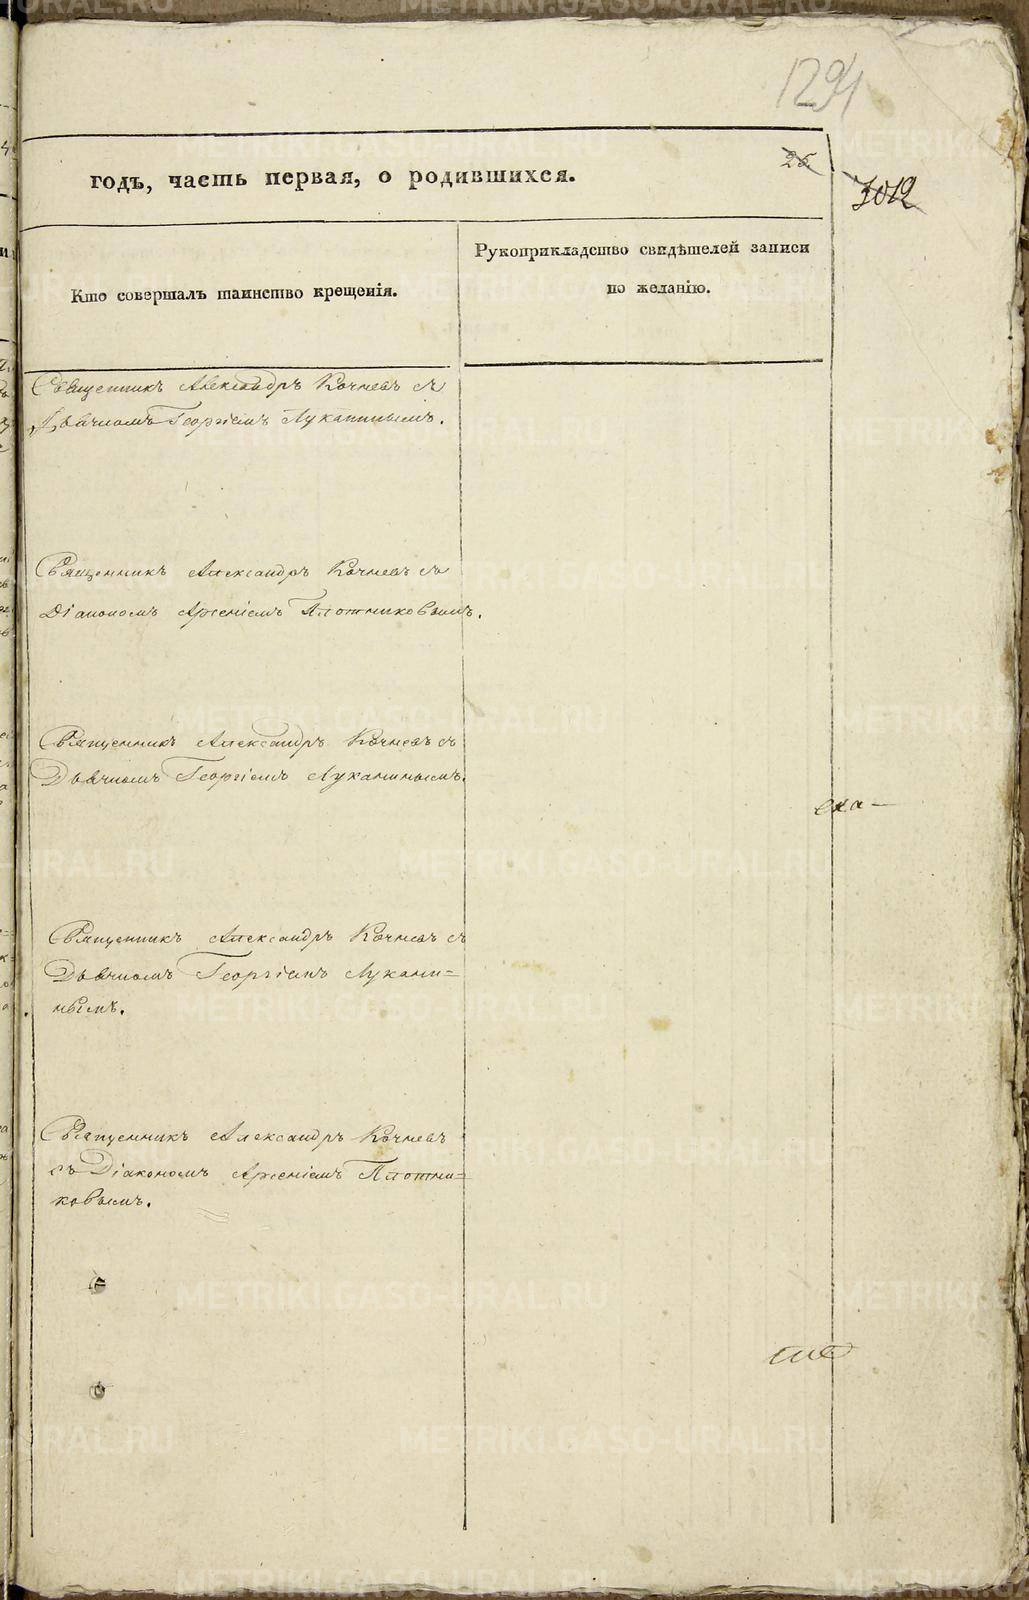 1291
годъ, часть первая, о родившихся.
26
1012
Кто совершалъ таинство крещенія.
Рукоприкладство свидѣтелей записи
по желанію.
Священникъ Александръ Кочневъ съ
Дьячкомъ Георгіемъ Луканинымъ.
Священникъ Александръ Кочневъ съ
Діакономъ Арсеніемъ Плотниковымъ.
Священникъ Александръ Кочневъ съ
Дьячкомъ Георгіемъ Луканинымъ.
ека-
Священникъ Александръ Кочневъ съ
Дьячкомъ Георгіемъ Лукани=
нымъ.
Священникъ Александръ Кочневъ
съ Діакономъ Арсеніемъ Плотни=
ковымъ.
METRIKI.GASO-URAL.RU